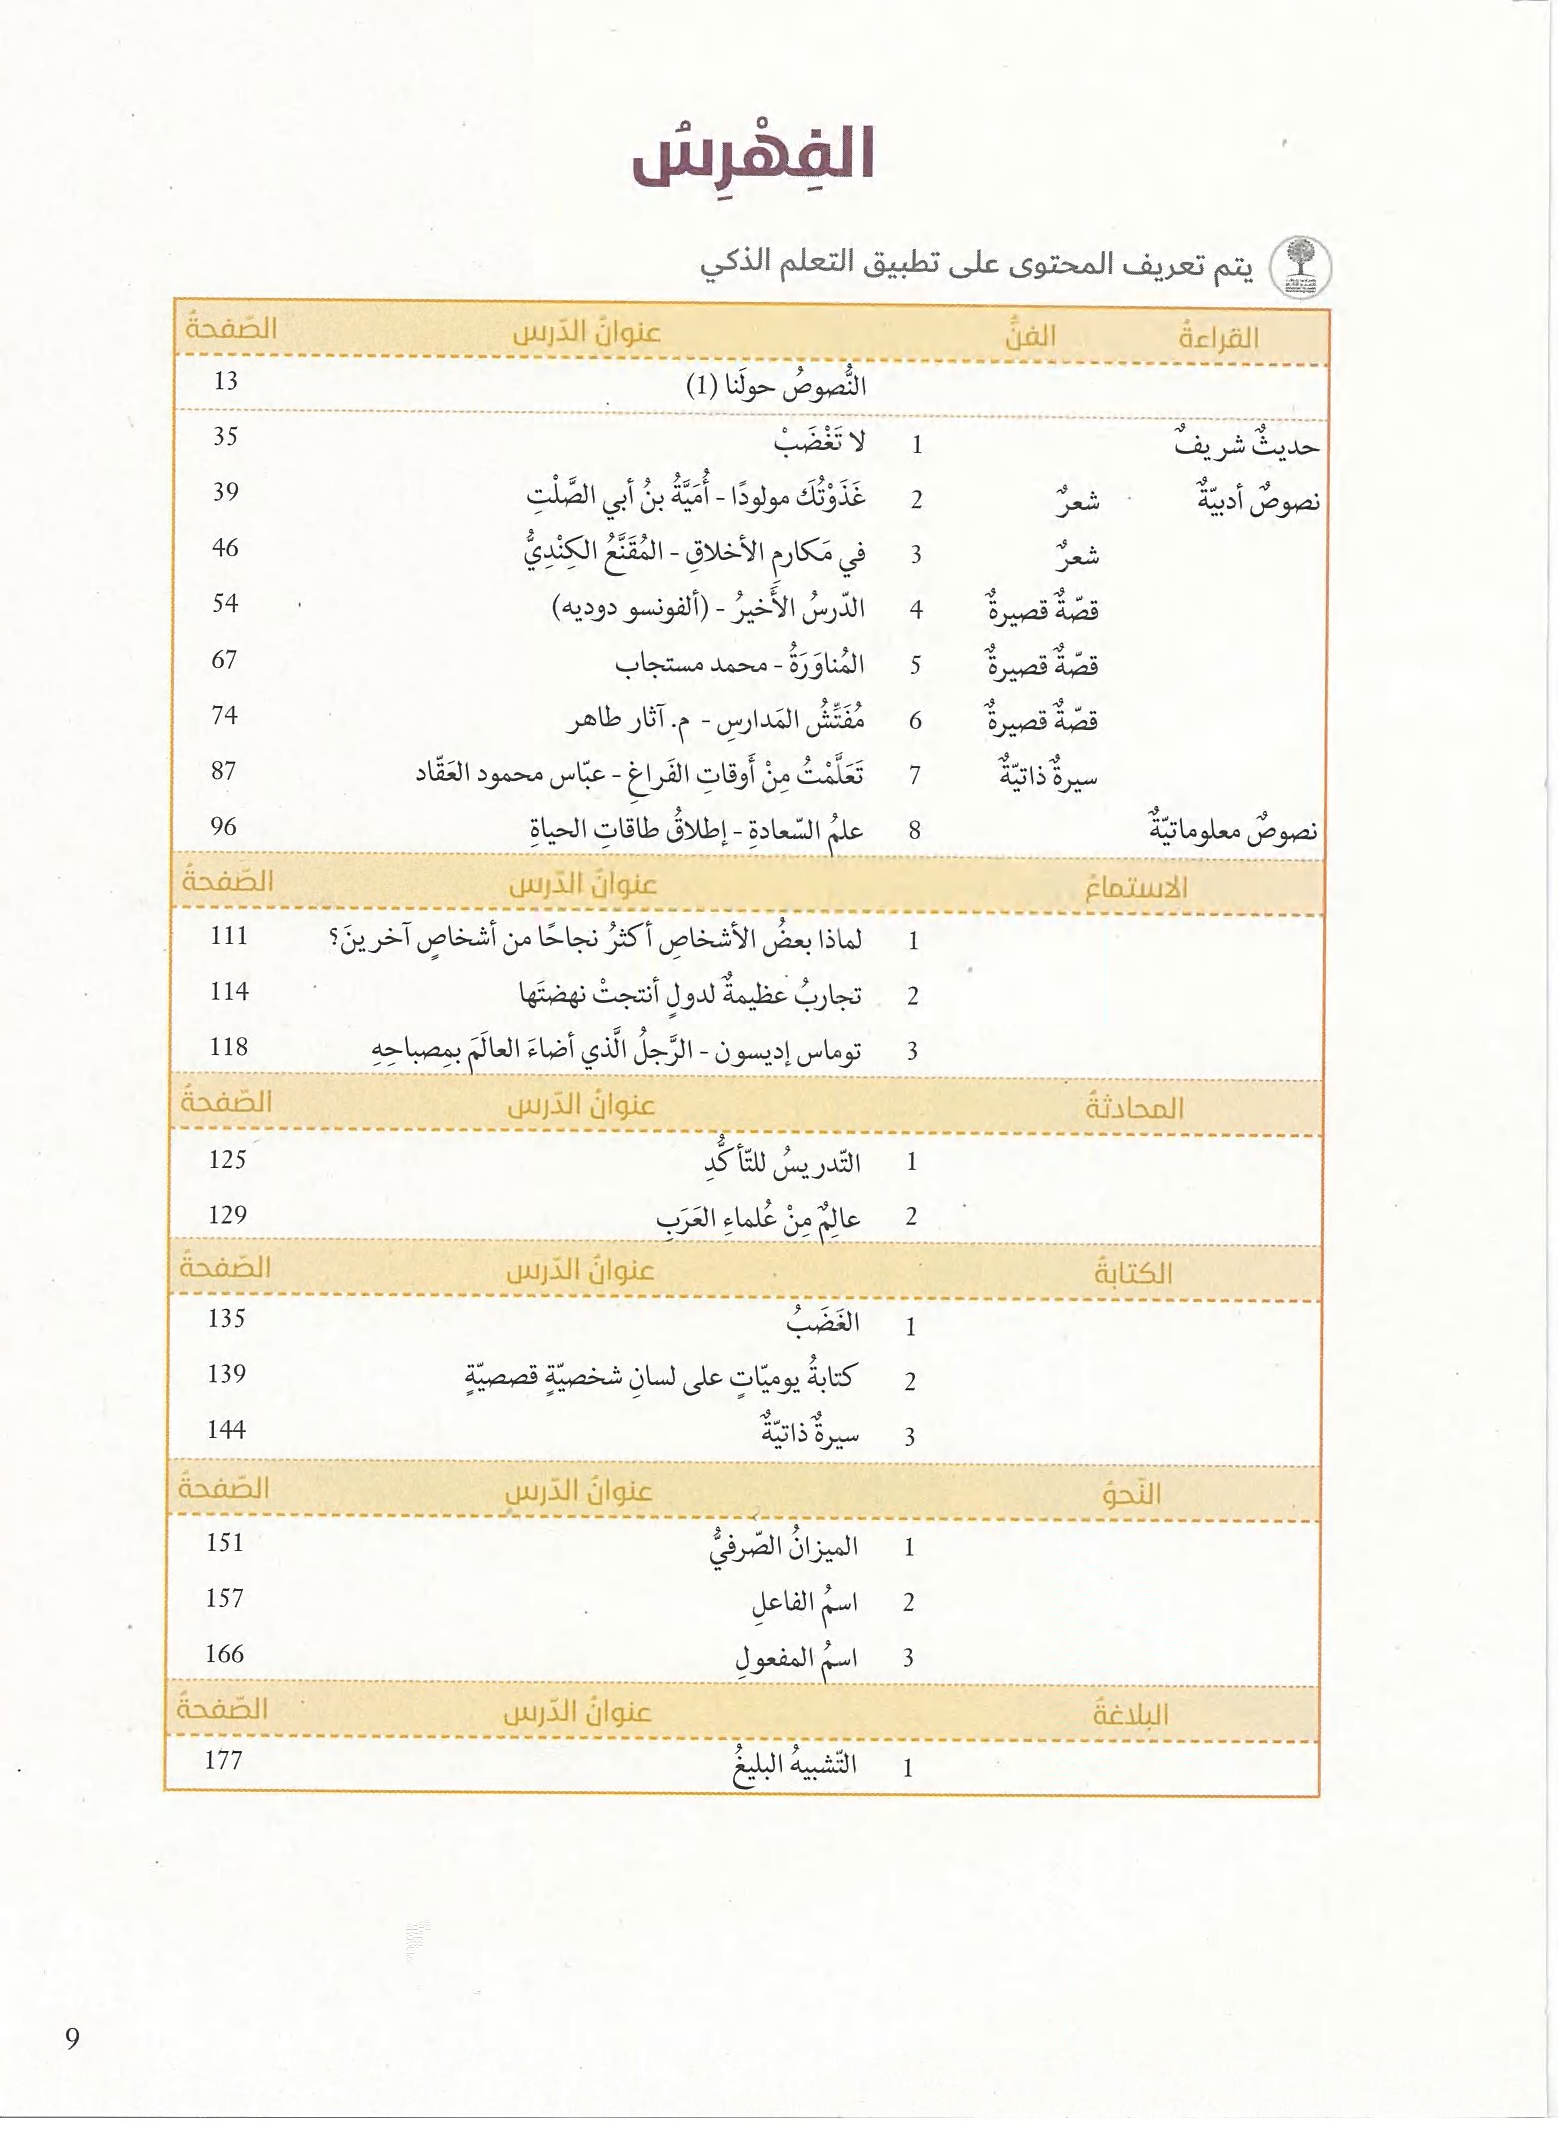 الفِهْرِسُ
يتم تعريف المحتوى على تطبيق التعلم الذكي
القراءةُ الفنُّ عنوانُ الدّرس الصّفحةُ
النُّصوصُ حولَنا (1) 13
حديثٌ شريفٌ 1 لا تَغْضَبْ 35
نصوصٌ أدبيّةٌ شعرٌ 2 غَذَوْتُكَ مولودًا - أُمَيَّةُ بنُ أبي الصَّلْتِ 39
شعرٌ 3 في مَكارمِ الأخلاقِ - المُقَنَّعُ الكِنْدِيُّ 46
قصّةٌ قصيرةٌ 4 الدّرسُ الأَخيرُ - (ألفونسو دوديه) 54
قصّةٌ قصيرةٌ 5 المُناوَرَةُ - محمد مستجاب 67
قصّةٌ قصيرةٌ 6 مُفَتِّشُ المَدارسِ - م. آثار طاهر 74
سيرةٌ ذاتيّةٌ 7 تَعَلَّمْتُ مِنْ أَوقاتِ الفَراغِ - عبّاس محمود العَقّاد 87
نصوصٌ معلوماتيّةٌ 8 علمُ السّعادةِ - إطلاقُ طاقاتِ الحياةِ 96
الاستماعُ عنوانُ الدّرس الصّفحةُ
1 لماذا بعضُ الأشخاصِ أكثرُ نجاحًا من أشخاصٍ آخرينَ؟ 111
2 تجاربُ عظيمةٌ لدولٍ أنتجتْ نهضتَها 114
3 توماس إديسون - الرَّجلُ الَّذي أضاءَ العالَمَ بمِصباحِهِ 118
المحادثةُ عنوانُ الدّرس الصّفحةُ
1 التّدريسُ للتّأكُّدِ 125
2 عالِمٌ مِنْ عُلماءِ العَرَبِ 129
الكتابةُ عنوانُ الدّرس الصّفحةُ
1 الغَضَبُ 135
2 كتابةُ يوميّاتٍ على لسانِ شخصيّةٍ قصصيّةٍ 139
3 سيرةٌ ذاتيّةٌ 144
النّحوُ عنوانُ الدّرسِ الصّفحةُ
1 الميزانُ الصّرفيُّ 151
2 اسمُ الفاعلِ 157
3 اسمُ المفعولِ 166
البلاغةُ عنوانُ الدّرس الصّفحةُ
1 التّشبيهُ البليغُ 177
9